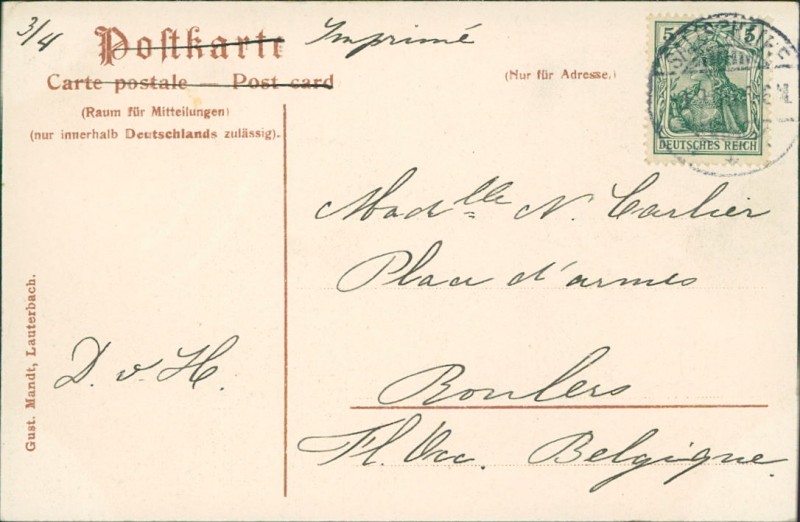 3/4
Postkarte Imprimé
Carte postale — Post card
(Raum für Mitteilungen)
(nur innerhalb Deutschlands zulässig).
(Nur für Adresse.)
5 5
DEUTSCHES REICH
Madlle N. Carlier
Place d'armes
Roulers
Fl. Occ. Belgique.
D. v. H.
Gust. Mandt, Lauterbach.